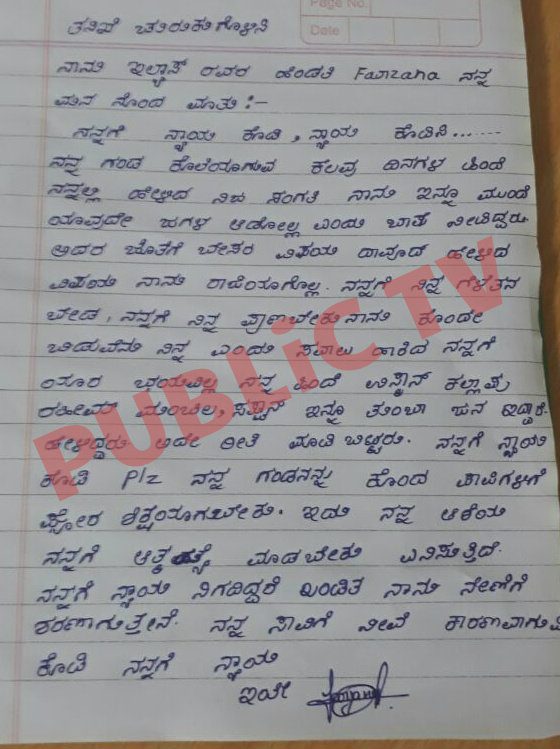 Page No.
Date
ತನಿಖೆ ಚುರುಕುಗೊಳಿಸಿ
ನಾನು ಇಲ್ಯಾಸ್ ರವರ ಹೆಂಡತಿ Farzana ನನ್ನ
ಮನ ನೊಂದ ಮಾತು :-
ನನ್ನಗೆ ನ್ಯಾಯ ಕೊಡಿ, ನ್ಯಾಯ ಕೊಡಿಸಿ......
ನನ್ನ ಗಂಡ ಕೊಲೆಯಾಗುವ ಕೆಲವು ದಿನಗಳ ಹಿಂದೆ
ನನ್ನಲ್ಲಿ ಹೇಳಿದ ನಿಜ ಸಂಗತಿ ನಾನು ಇನ್ನೂ ಮುಂದೆ
ಯಾವುದೇ ಜಗಳ ಆಡೋಲ್ಲ ಎಂದು ಭಾಷೆ ನೀಡಿದ್ದರು.
ಅದರ ಜೊತೆಗೆ ಬೇಸರ ವಿಷಯ ದಾವೂದ್ ಹೇಳಿದ
ವಿಷಯ ನಾನು ರಾಜಿಯಾಗೊಲ್ಲ. ನನ್ನಗೆ ನಿನ್ನ ಗೆಳೆತನ
ಬೇಡ, ನನ್ನಗೆ ನಿನ್ನ ಪ್ರಾಣಬೇಕು ನಾನು ಕೊಂದೇ
ಬಿಡುವೆನು ನಿನ್ನ ಎಂದು ಸವಾಲು ಹಾಕಿದ ನನ್ನಗೆ
ಯಾರ ಭಯವಿಲ್ಲ ನನ್ನ ಹಿಂದೆ ಉಸ್ಮಾನ್ ಕಲ್ಲಾಪು
ರಹೀಮ್ ಮಂಚಿಲ, ಸಫ್ವಾನ್ ಇನ್ನೂ ತುಂಬಾ ಜನ ಇದ್ದಾರೆ
ಹೇಳಿದ್ದರು ಅದೇ ರೀತಿ ಮಾಡಿ ಬಿಟ್ಟರು. ನನ್ನಗೆ ನ್ಯಾಯ
ಕೊಡಿ Plz ನನ್ನ ಗಂಡನನ್ನು ಕೊಂದ ಪಾಪಿಗಳಿಗೆ
ಘೋರ ಶಿಕ್ಷೆಯಾಗಬೇಕು. ಇದು ನನ್ನ ಆಶೆಯ
ನನ್ನಗೆ ಆತ್ಮ ಮಾಡಬೇಕು ಎನಿಸುತ್ತಿದೆ.
ನನ್ನಗೆ ನ್ಯಾಯ ಸಿಗದಿದ್ದರೆ ಖಂಡಿತ ನಾನು ನೇಣಿಗೆ
ಶರಣಾಗುತ್ತೇನೆ. ನನ್ನ ಸಾವಿಗೆ ನೀವೆ ಕಾರಣವಾಗುವಿ
ಕೊಡಿ ನನ್ನಗೆ ನ್ಯಾಯ
ಇಂತೀ
PUBLiC TV